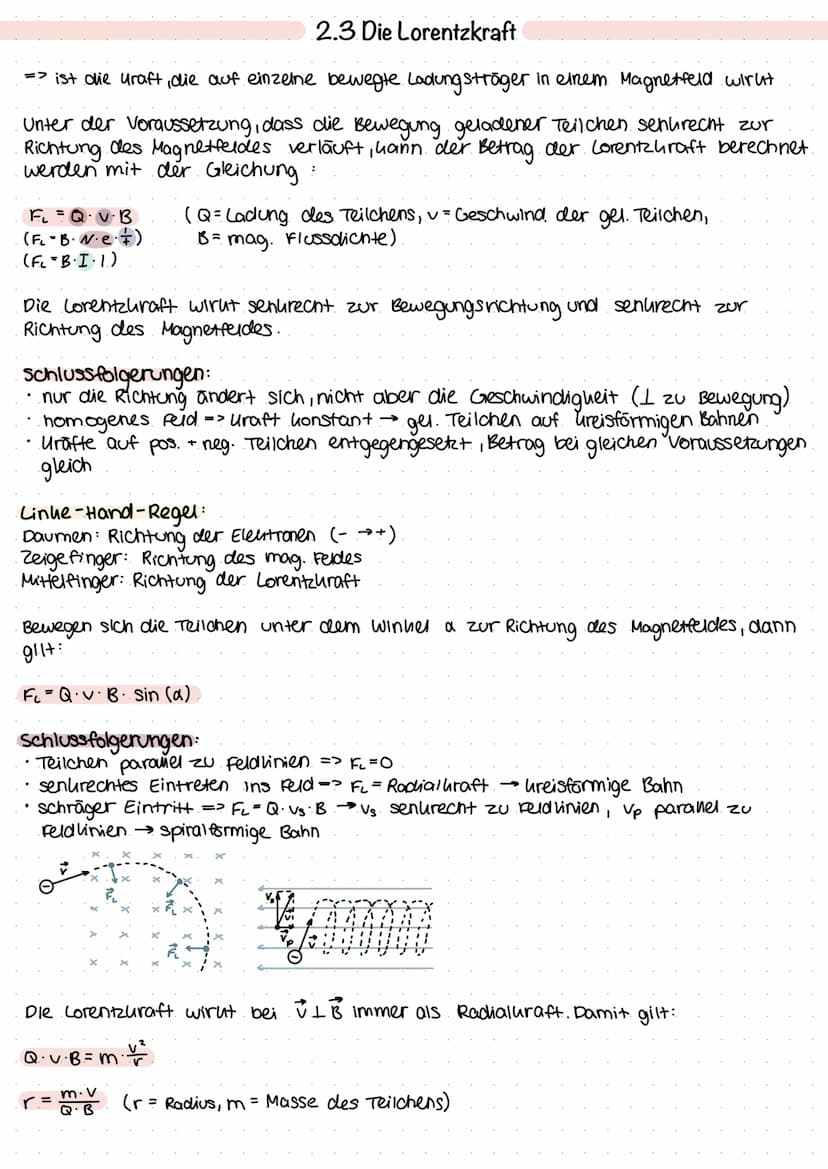 2.3 Die Lorentzkraft
=> ist die Kraft, die auf einzelne bewegte Ladungsträger in einem Magnetfeld wirkt
Unter der Voraussetzung, dass die Bewegung geladener Teilchen senkrecht zur
Richtung des Magnetfeldes verläuft, kann der Betrag der Lorentzkraft berechnet
werden mit der Gleichung :
F_L = Q · v · B (Q = Ladung des Teilchens, v = Geschwind der gel. Teilchen,
(F_L = B · N · e · l/t) B = mag. Flussdichte)
(F_L = B · I · l)
Die Lorentzkraft wirkt senkrecht zur Bewegungsrichtung und senkrecht zur
Richtung des Magnetfeldes.
Schlussfolgerungen:
· nur die Richtung ändert sich, nicht aber die Geschwindigkeit (⊥ zu Bewegung)
· homogenes Feld => Kraft konstant → gel. Teilchen auf kreisförmigen Bahnen
· Kräfte auf pos. + neg. Teilchen entgegengesetzt, Betrag bei gleichen Voraussetzungen
gleich
Linke-Hand-Regel:
Daumen: Richtung der Elektronen (- → +)
Zeigefinger: Richtung des mag. Feldes
Mittelfinger: Richtung der Lorentzkraft
Bewegen sich die Teilchen unter dem Winkel α zur Richtung des Magnetfeldes, dann
gilt:
F_L = Q · v · B · sin (α)
Schlussfolgerungen:
· Teilchen parallel zu Feldlinien => F_L = 0
· senkrechtes Eintreten ins Feld => F_L = Radialkraft → kreisförmige Bahn
· schräger Eintritt => F_L = Q · v_s · B → v_s senkrecht zu Feldlinien, v_p parallel zu
Feldlinien → spiralförmige Bahn
v⃗
F⃗_L
F⃗_L
F⃗_L
v⃗_s
v⃗
v⃗_p
v⃗
Die Lorentzkraft wirkt bei v⃗ ⊥ B⃗ immer als Radialkraft. Damit gilt:
Q · v · B = m · v²/r
r = m · v / Q · B (r = Radius, m = Masse des Teilchens)